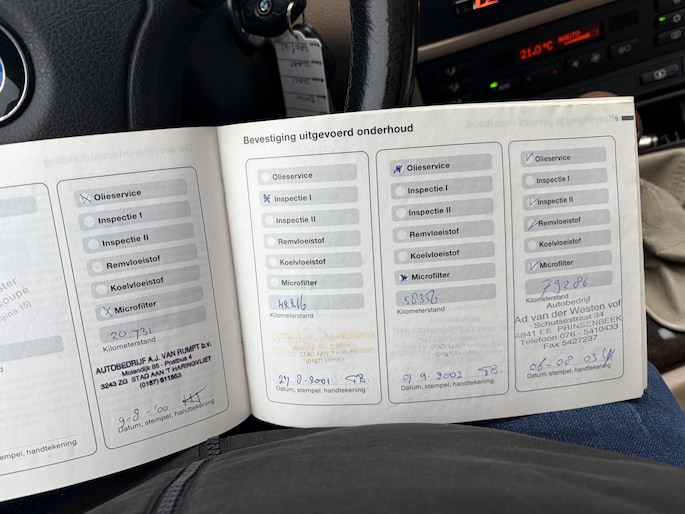 21.0°C AUTO
Bevestiging uitgevoerd onderhoud
9
Olieservice
Inspectie I
Inspectie II
Remvloeistof
Koelvloeistof
Microfilter
20 731
Kilometerstand
AUTOBEDRIJF A.J. VAN RUMPT b.v.
Molendijk 85 - Postbus 4
3243 ZG STAD AAN 'T HARINGVLIET
(0187) 611563
9-8-'00
Datum, stempel, handtekening
Olieservice
Inspectie I
Inspectie II
Remvloeistof
Koelvloeistof
Microfilter
Kilometerstand
STAD AAN 'T HARINGVLIET
27-8-2001
Datum, stempel, handtekening
Olieservice
Inspectie I
Inspectie II
Remvloeistof
Koelvloeistof
Microfilter
Kilometerstand
9-9-2002
Datum, stempel, handtekening
Olieservice
Inspectie I
Inspectie II
Remvloeistof
Koelvloeistof
Microfilter
79286
Kilometerstand
Autobedrijf
Ad van der Westen vof
Schutsestraat 34
4841 EE PRINSENBEEK
Telefoon 076 - 5410433
Fax 5427237
06-08 03
Datum, stempel, handtekening
coupé
handtekening